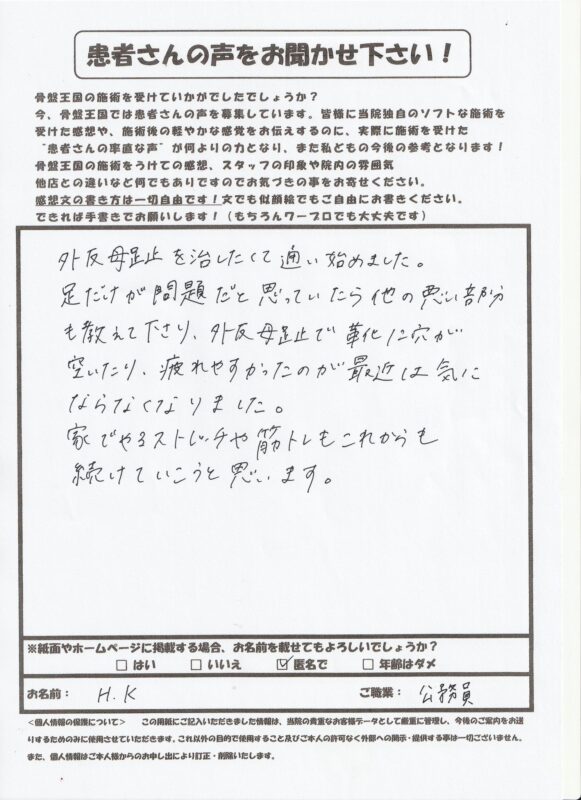 患者さんの声をお聞かせ下さい！
骨盤王国の施術を受けていかがでしたでしょうか？
今、骨盤王国では患者さんの声を募集しています。皆様に当院独自のソフトな施術を
受けた感想や、施術後の軽やかな感覚をお伝えするのに、実際に施術を受けた
“患者さんの率直な声”が何よりの力となり、また私どもの今後の参考となります！
骨盤王国の施術をうけての感想、スタッフの印象や院内の雰囲気
他店との違いなど何でもありですのでお気づきの事をお寄せください。
感想文の書き方は一切自由です！文でも似顔絵でもご自由にお書きください。
できれば手書きでお願いします！（もちろんワープロでも大丈夫です）
外反母趾を治したくて通い始めました。
足だけが問題だと思っていたら他の悪い部分
も教えて下さり、外反母趾で靴に穴が
空いたり、疲れやすかったのが最近は気に
ならなくなりました。
家でやるストレッチや筋トレもこれからも
続けていこうと思います。
※紙面やホームページに掲載する場合、お名前を載せてもよろしいでしょうか？
□ はい □ いいえ ☑ 匿名で □ 年齢はダメ
お名前： H.K ご職業： 公務員
＜個人情報の保護について＞ この用紙にご記入いただきました情報は、当院の貴重なお客様データとして厳重に管理し、今後のご案内をお送
りするためのみに使用させていただきます。これ以外の目的で使用すること及びご本人の許可なく外部への開示・提供する事は一切ございません。
また、個人情報はご本人様からのお申し出により訂正・削除いたします。